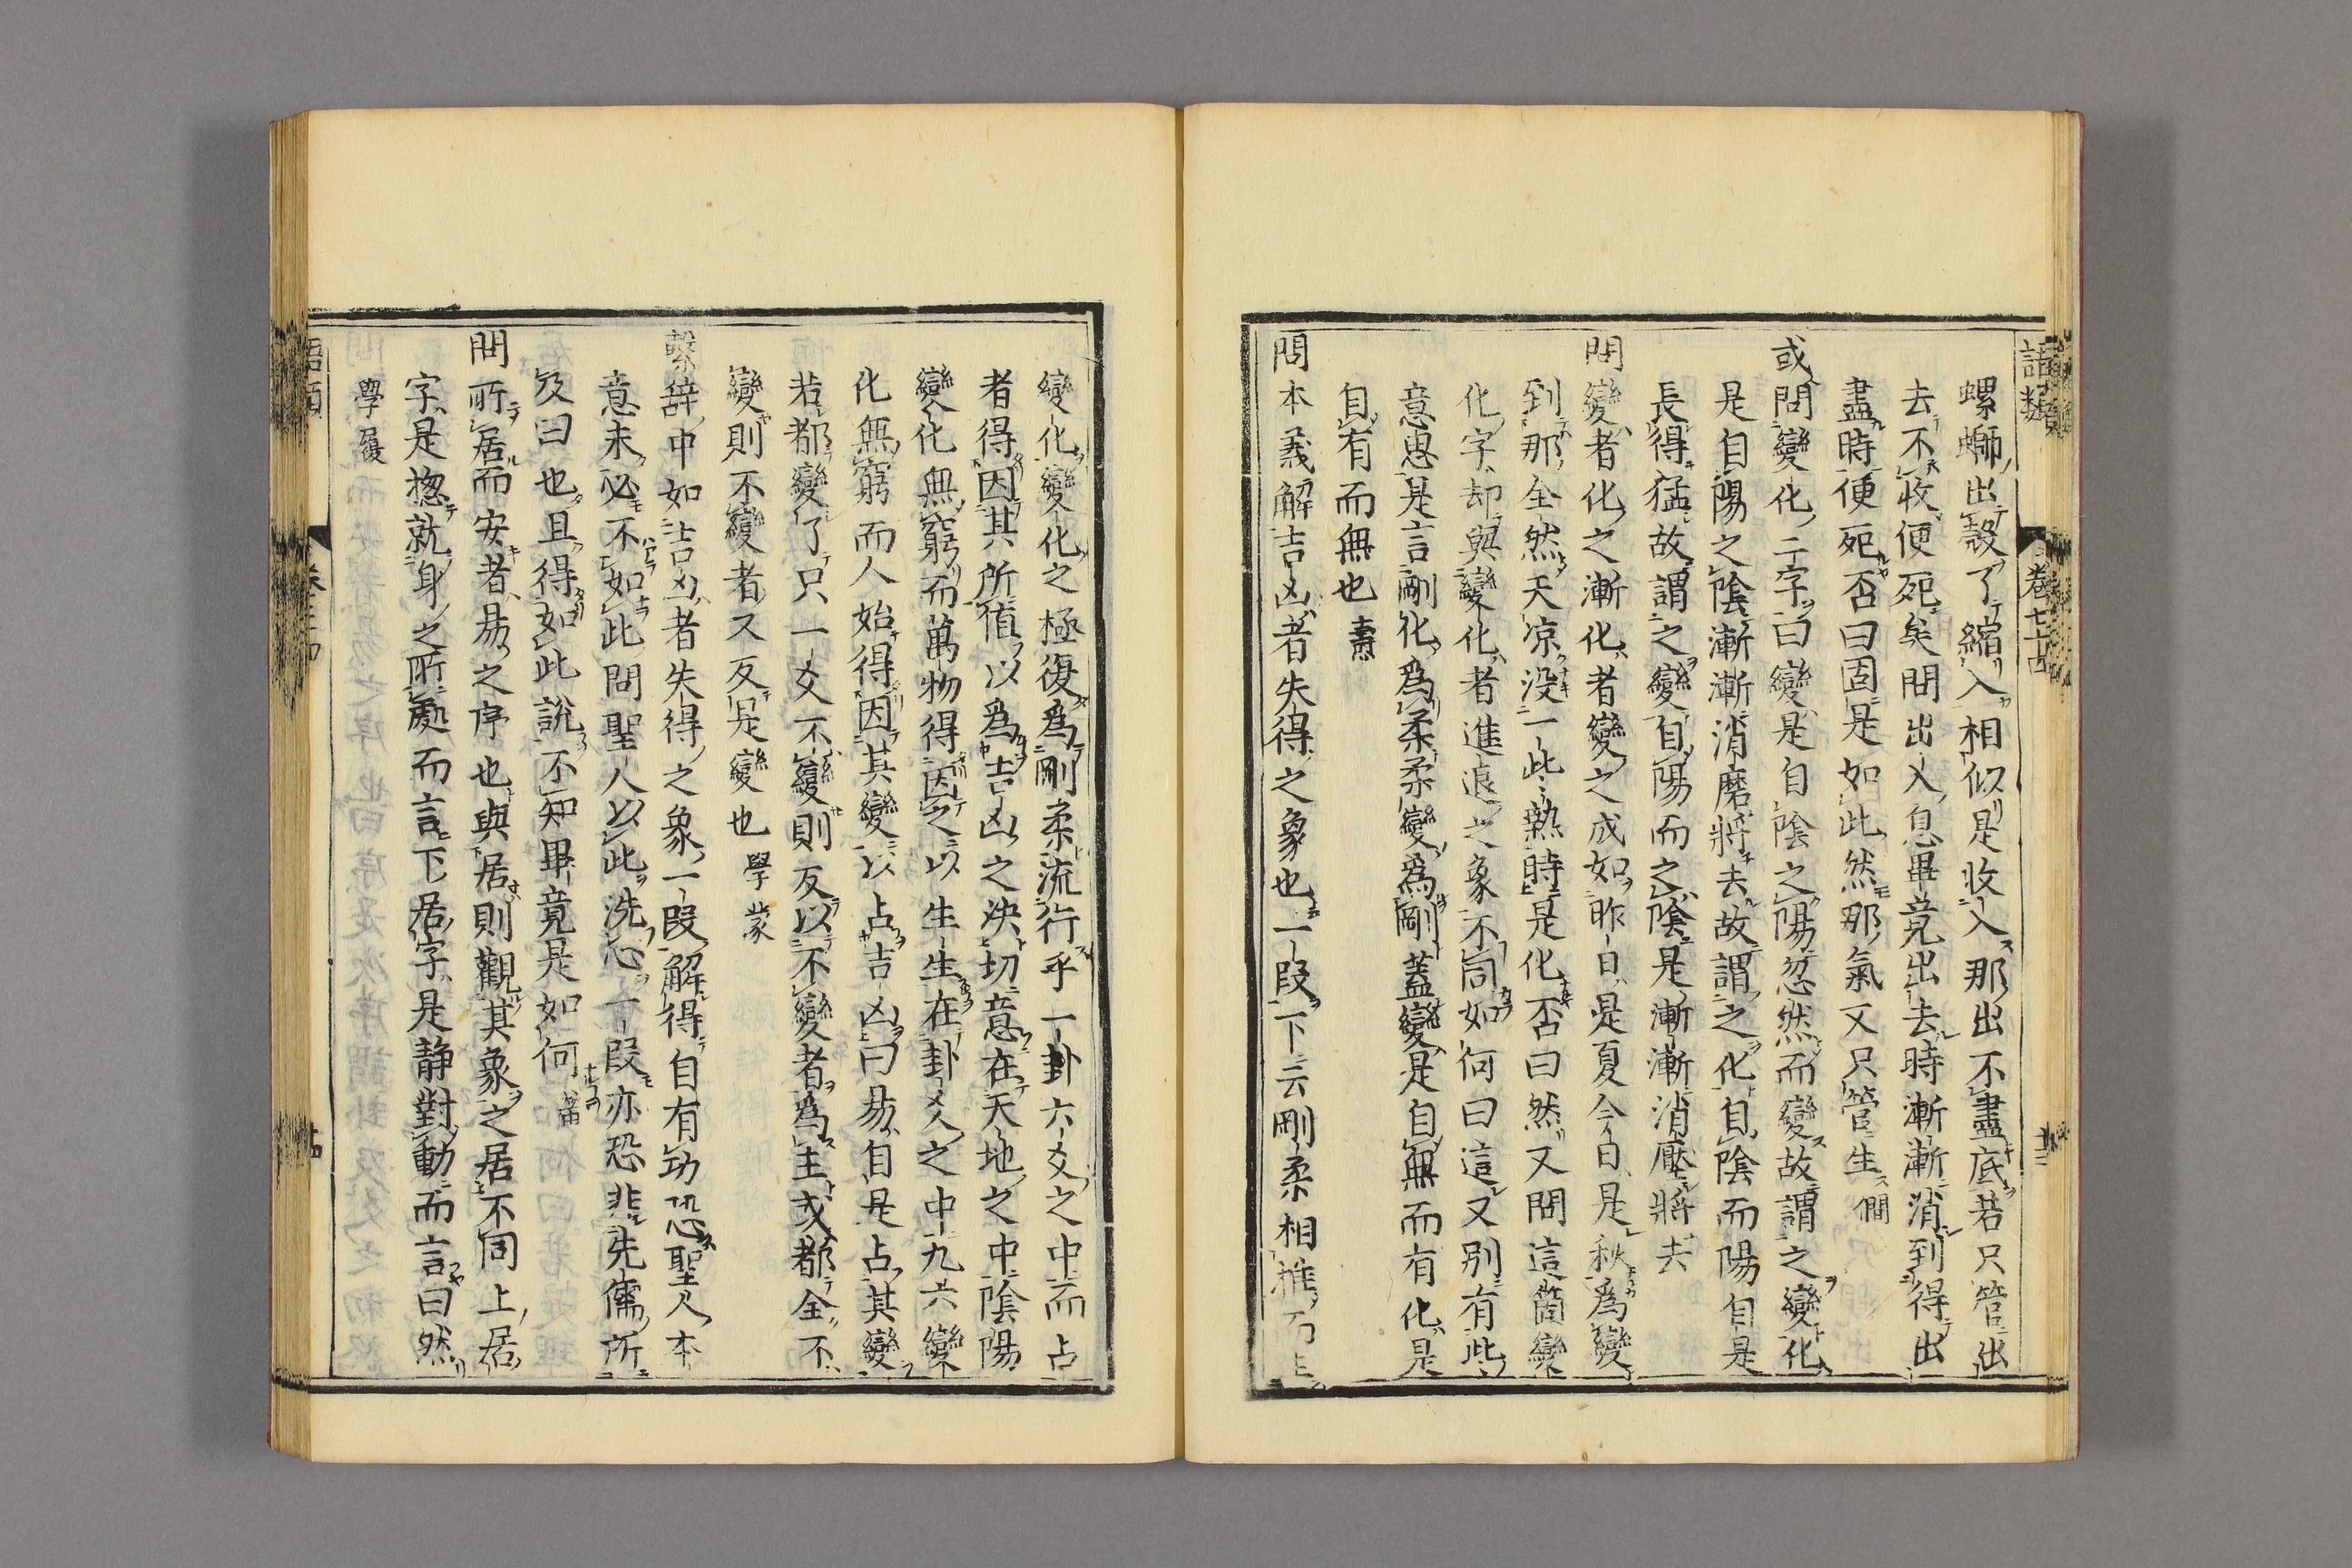 語類
卷七十四
螺螄出殼了縮入相似是收入那出不盡底若只管出
去不收便死矣問出入息畢竟出去時漸漸消到得出
盡時便死否曰固是如此然那氣又只管生 僩
或問變化二字曰變是自陰之陽忽然而變故謂之變化
是自陽之陰漸漸消磨將去故謂之化自陰而陽自是
長得猛故謂之變自陽而之陰是漸漸消壓將去
問變者化之漸化者變之成如昨日是夏今日是秋爲變
到那全然天凉没一些熱時是化否曰然又問這箇變
化字却與變化者進退之象不同如何曰這又別有些
意思是言剛化爲柔柔變爲剛蓋變是自無而有化是
自有而無也 燾
問本義解吉凶者失得之象也一段下云剛柔相推而生
變化變化之極復爲剛柔流行乎一卦六爻之中而占
者得因其所值以爲吉凶之決切意在天地之中陰陽
變化無窮而萬物得因之以生生在卦爻之中九六變
化無窮而人始得因其變以占吉凶曰易自是占其變
若都變了只一爻不變則反以不變者爲主或都全不
變則不變者又反是變也 學蒙
繫辭中如吉凶者失得之象一段解得自有功恐聖人本
意未必不如此問聖人以此洗心一段亦恐非先儒所
及曰也且得如此說不知畢竟是如何 䕫
問所居而安者易之序也與居則觀其象之居不同上居
字是揔就身之所處而言下居字是靜對動而言曰然
學履
語類